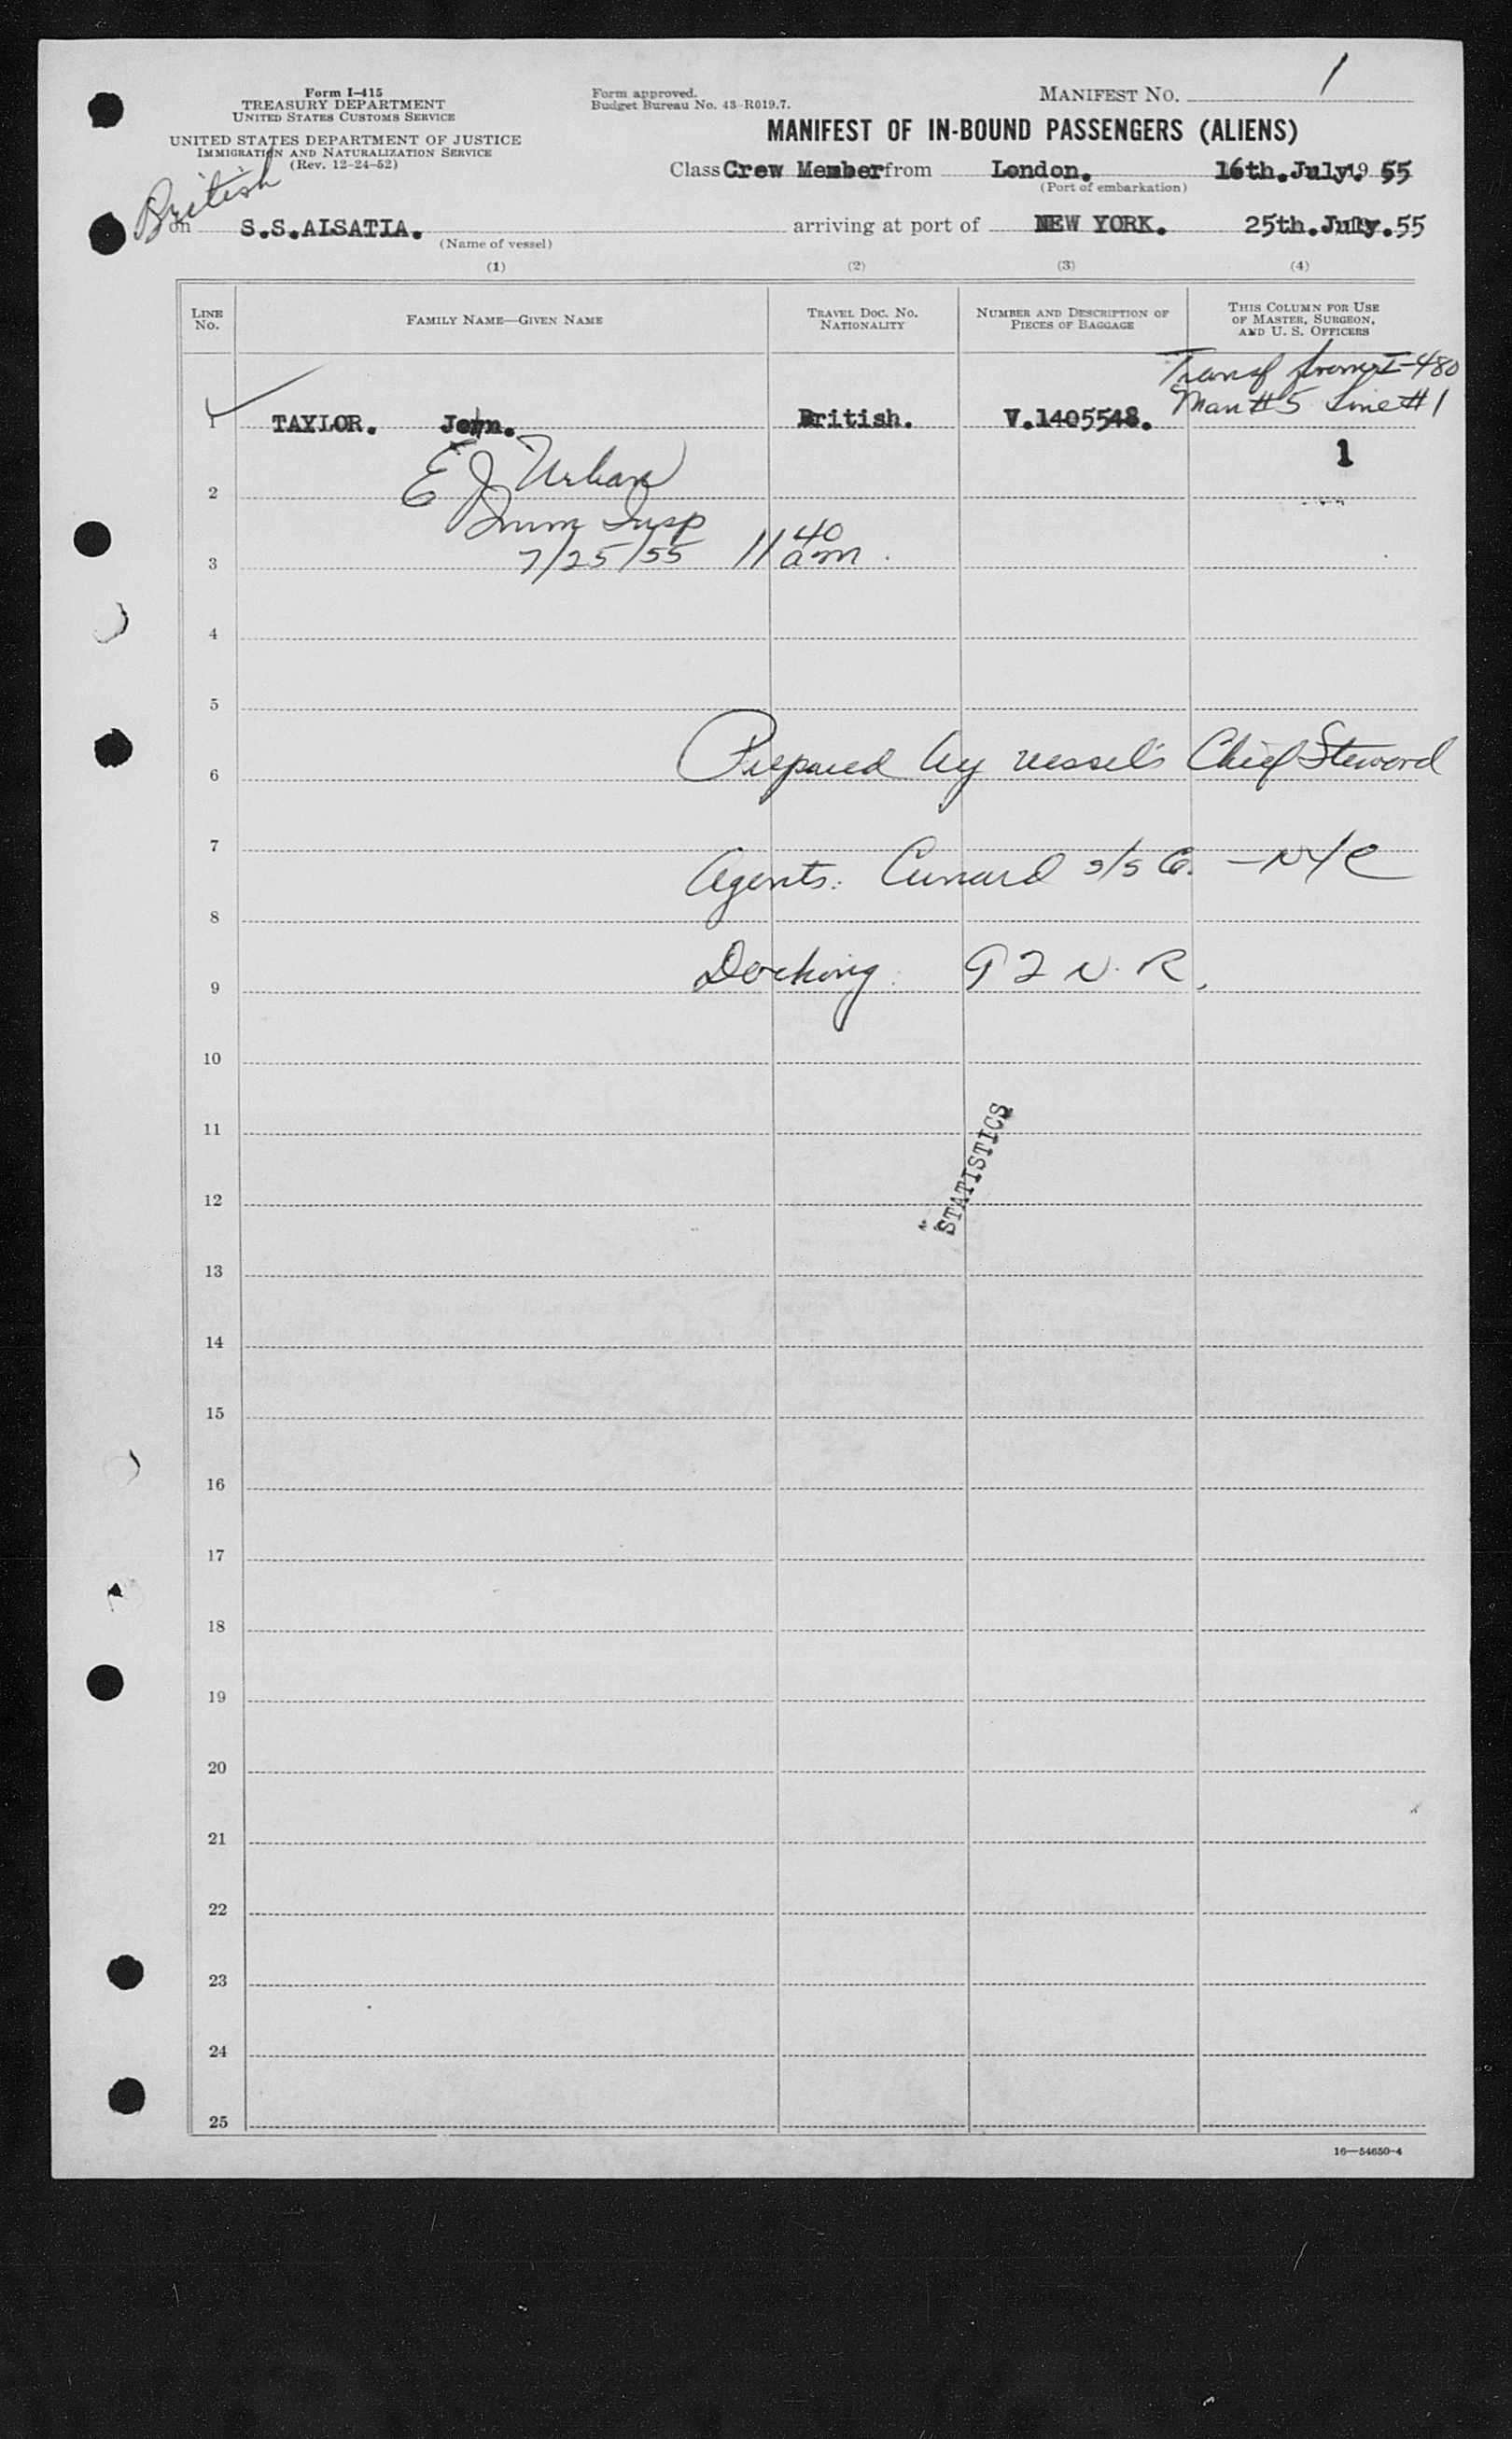 Form I-415
TREASURY DEPARTMENT
UNITED STATES CUSTOMS SERVICE
UNITED STATES DEPARTMENT OF JUSTICE
IMMIGRATION AND NATURALIZATION SERVICE
(Rev. 12-24-52)
Form approved.
Budget Bureau No. 43-R019.7.
MANIFEST NO. 1
MANIFEST OF IN-BOUND PASSENGERS (ALIENS)
Class Crew Member from London. 16th.July. 19 55
(Port of embarkation)
British
on S.S.ALSATIA. arriving at port of NEW YORK. 25th.July.55
(Name of vessel)
(1) (2) (3) (4)
LINE NO. FAMILY NAME—GIVEN NAME TRAVEL DOC. NO. NATIONALITY NUMBER AND DESCRIPTION OF PIECES OF BAGGAGE THIS COLUMN FOR USE OF MASTER, SURGEON, AND U. S. OFFICERS
Transf from I-480
Man #5 Line #1
1 TAYLOR. John. British. V.1405548.
1
E J Urban
2
Imm Insp
3 7/25/55 11 40 am.
4
5
6 Prepared by vessel's Chief Steward
7
Agents: Cunard S/S Co. - NYC
8
9 Docking: 92 N. R.
10
11
STATISTICS
12
13
14
15
16
17
18
19
20
21
22
23
24
25
16—54650-4